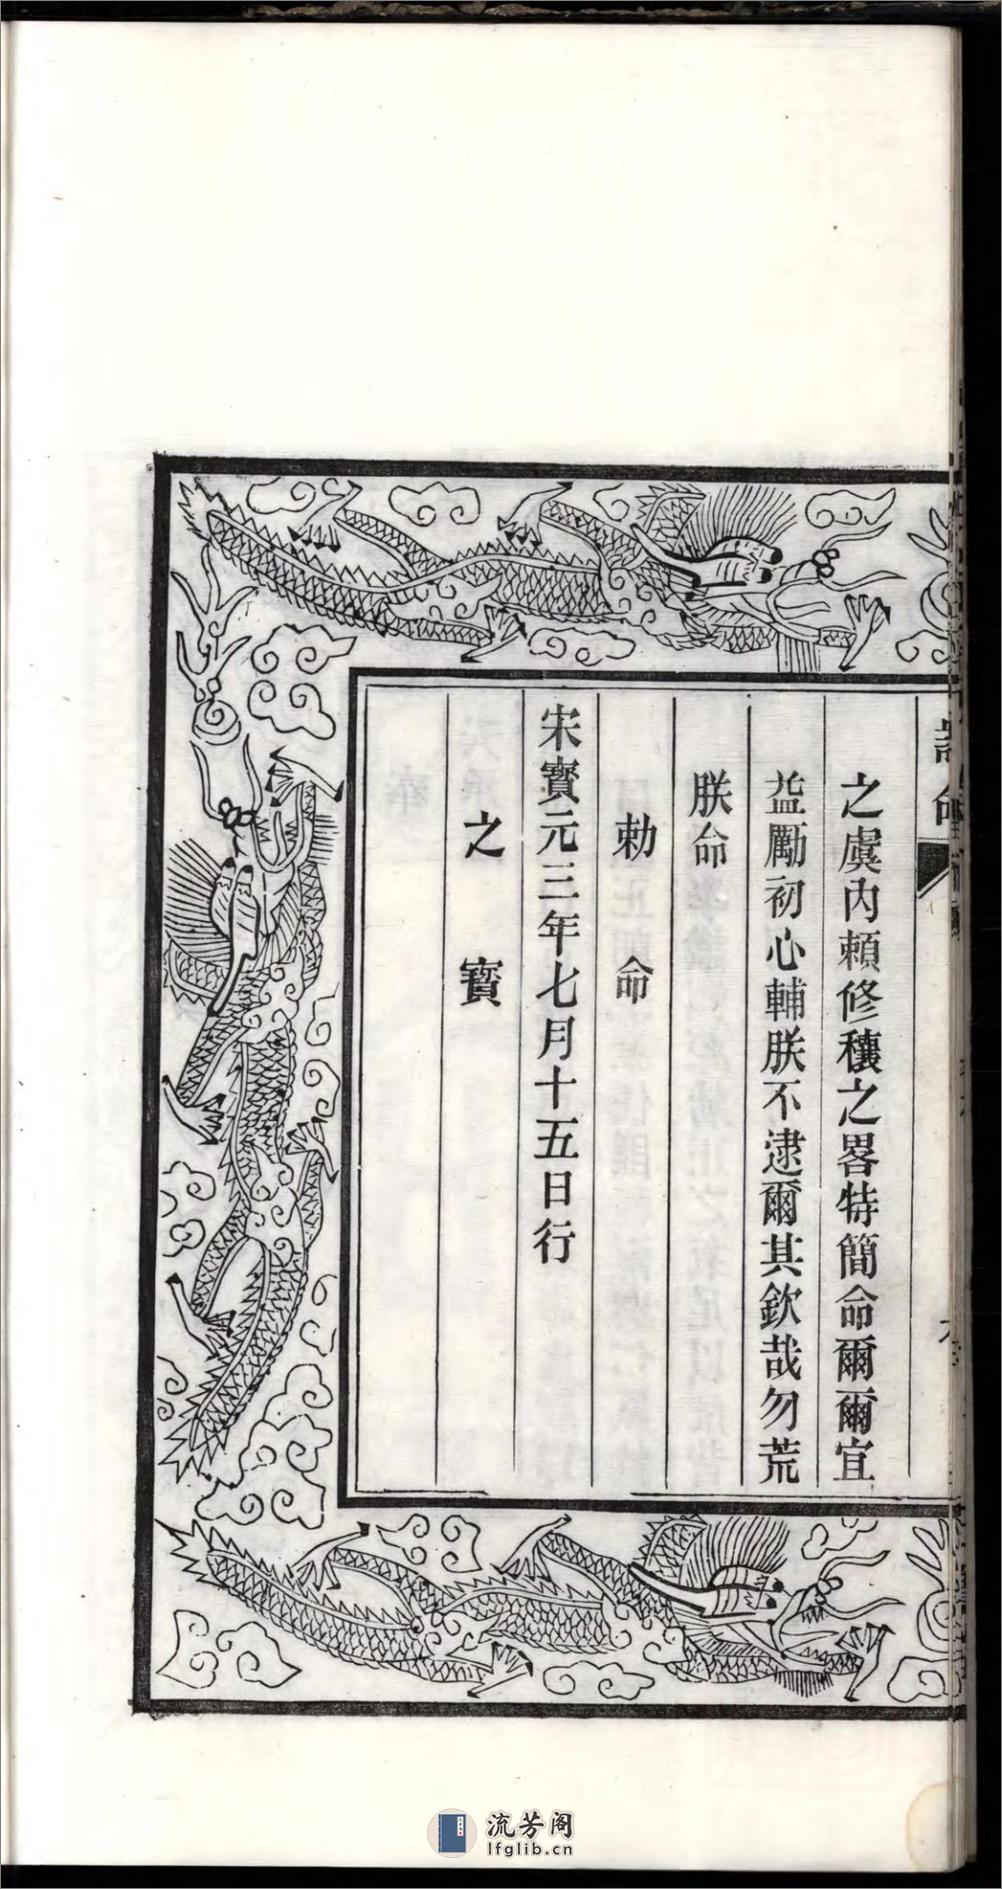 之虞內頼修穰之畧特簡命爾爾宜
益勵初心輔朕不逮爾其欽哉勿荒
朕命
勅命
宋寳元三年七月十五日行
之寳
流芳阁
lfglib.cn